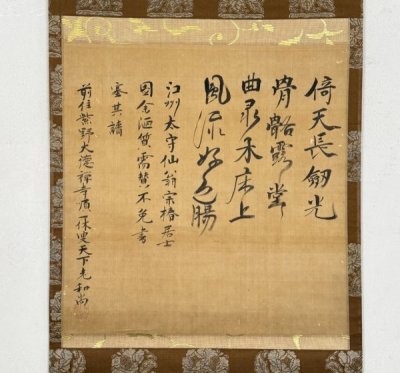 倚天長劒光
骨骼露堂々
曲彔木床上
風流好色腸
江州太守仙翁宗椿居士
因金需賛不免書
塞其請
前住紫野大徳禅寺一休叟天下老和尚